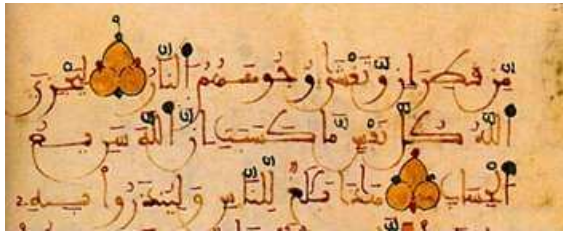 مِّن قَطِرَانٍ وَتَغْشَىٰ وُجُوهَهُمُ النَّارُ لِيَجْزِيَ
اللَّهُ كُلَّ نَفْسٍ مَّا كَسَبَتْ إِنَّ اللَّهَ سَرِيعُ
الْحِسَابِ هَٰذَا بَلَٰغٌ لِّلنَّاسِ وَلِيُنذَرُوا بِهِ